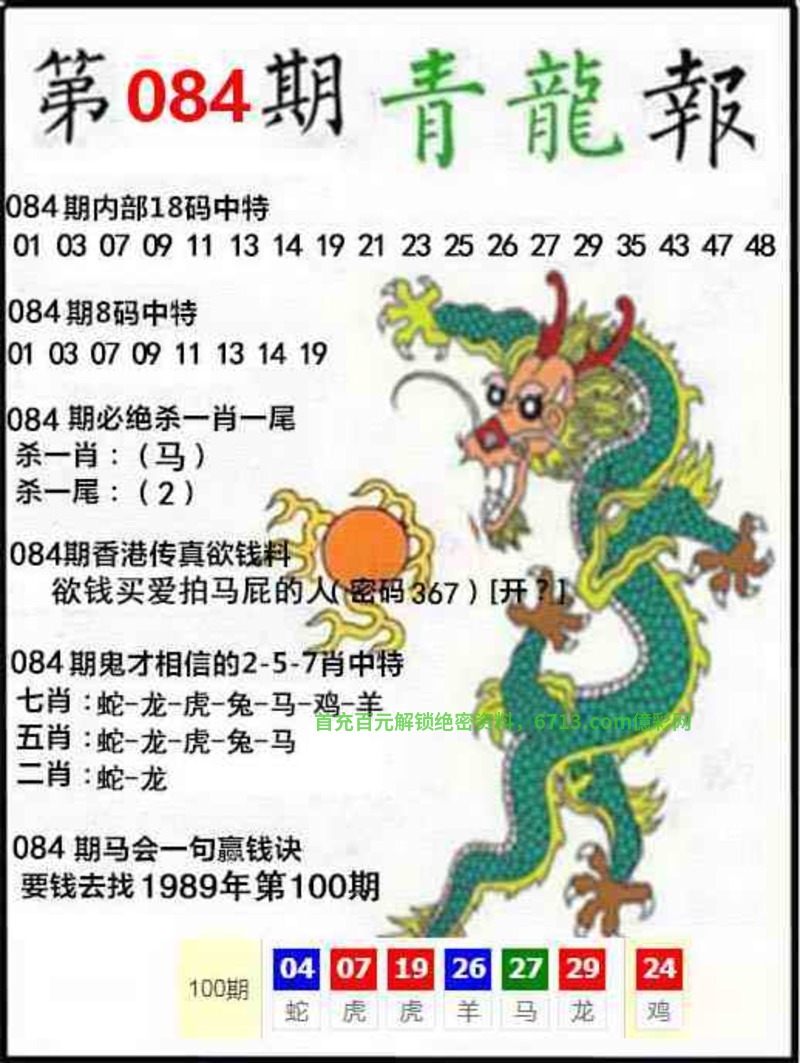 第084期青龍報
084期内部18码中特
01 03 07 09 11 13 14 19 21 23 25 26 27 29 35 43 47 48
084期8码中特
01 03 07 09 11 13 14 19
084期必绝杀一肖一尾
杀一肖：（马）
杀一尾：（2）
084期香港传真欲钱料
欲钱买爱拍马屁的人(密码367)[开？]
084期鬼才相信的2-5-7肖中特
七肖：蛇-龙-虎-兔-马-鸡-羊
首充百元解锁绝密资料，6713.com億彩网
五肖：蛇-龙-虎-兔-马
二肖：蛇-龙
084期马会一句赢钱诀
要钱去找1989年第100期
100期 04 07 19 26 27 29 24
蛇 虎 虎 羊 马 龙 鸡